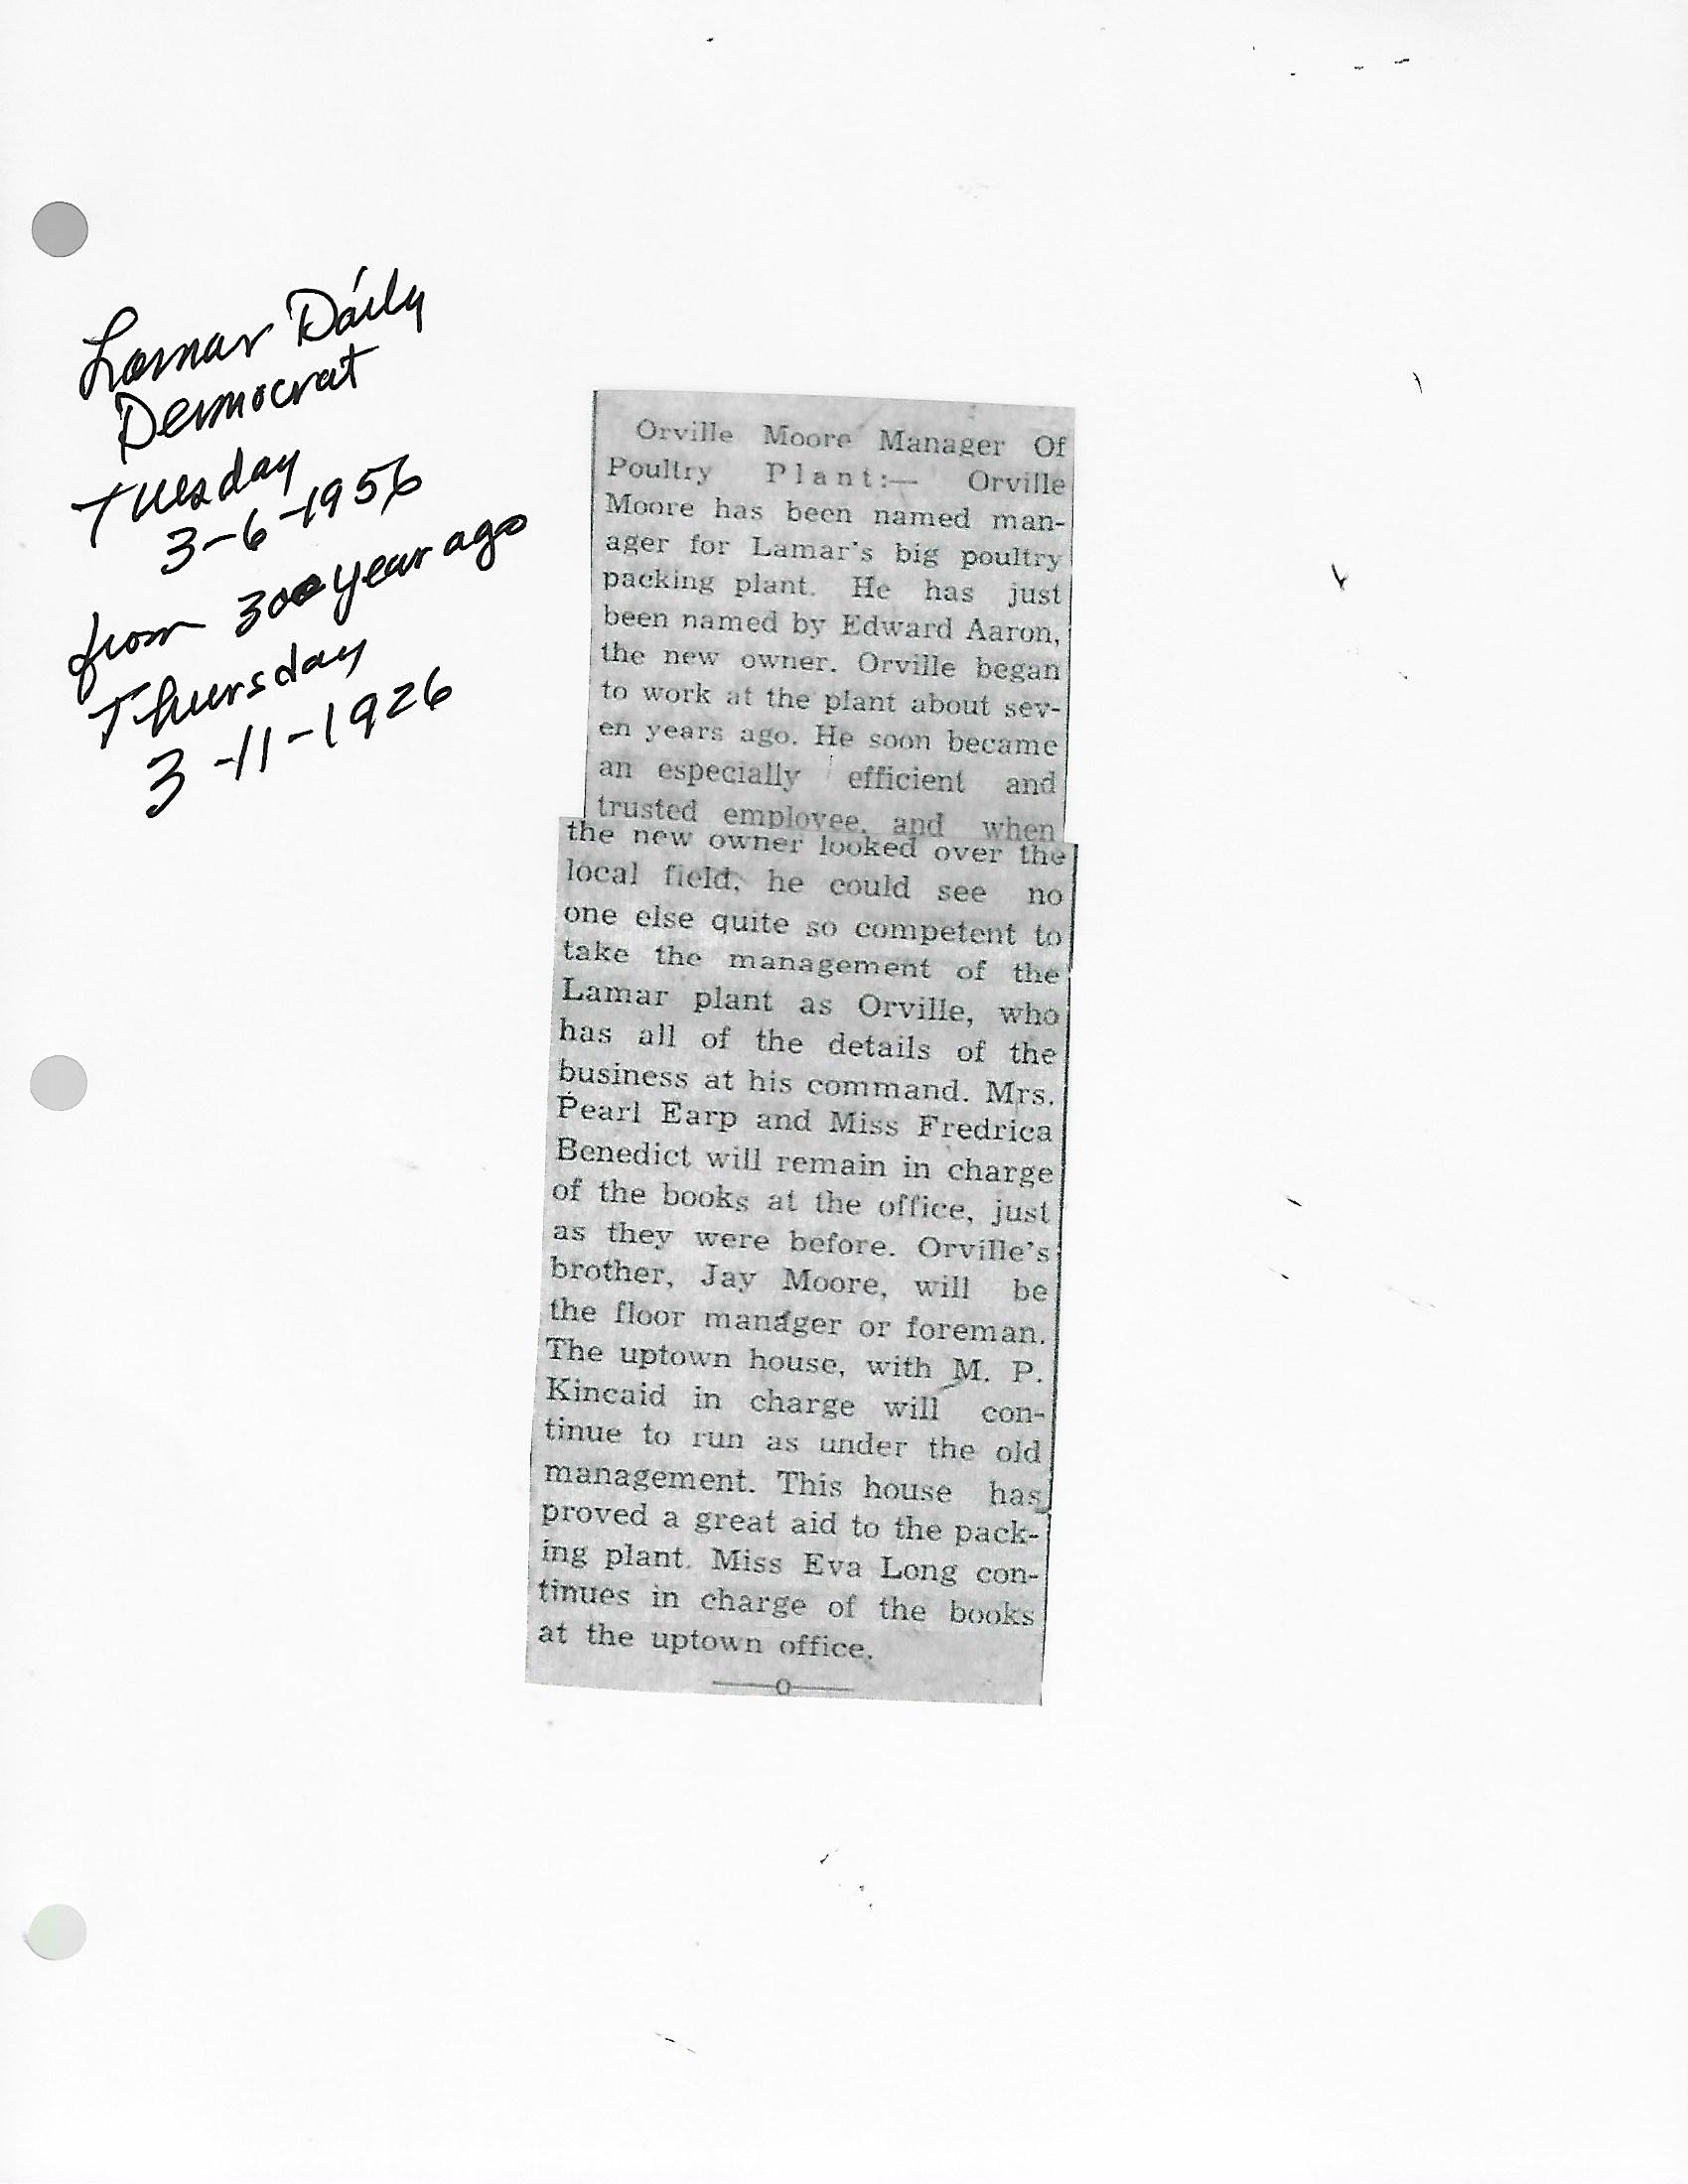 Lamar Daily
Democrat
Tuesday
3-6-1956
from 30 year ago
Thursday
3-11-1926
Orville Moore Manager Of
Poultry Plant:— Orville
Moore has been named man-
ager for Lamar's big poultry
packing plant. He has just
been named by Edward Aaron,
the new owner. Orville began
to work at the plant about sev-
en years ago. He soon became
an especially efficient and
trusted employee, and when
the new owner looked over the
local field, he could see no
one else quite so competent to
take the management of the
Lamar plant as Orville, who
has all of the details of the
business at his command. Mrs.
Pearl Earp and Miss Fredrica
Benedict will remain in charge
of the books at the office, just
as they were before. Orville's
brother, Jay Moore, will be
the floor manager or foreman.
The uptown house, with M. P.
Kincaid in charge will con-
tinue to run as under the old
management. This house has
proved a great aid to the pack-
ing plant. Miss Eva Long con-
tinues in charge of the books
at the uptown office.
——o——